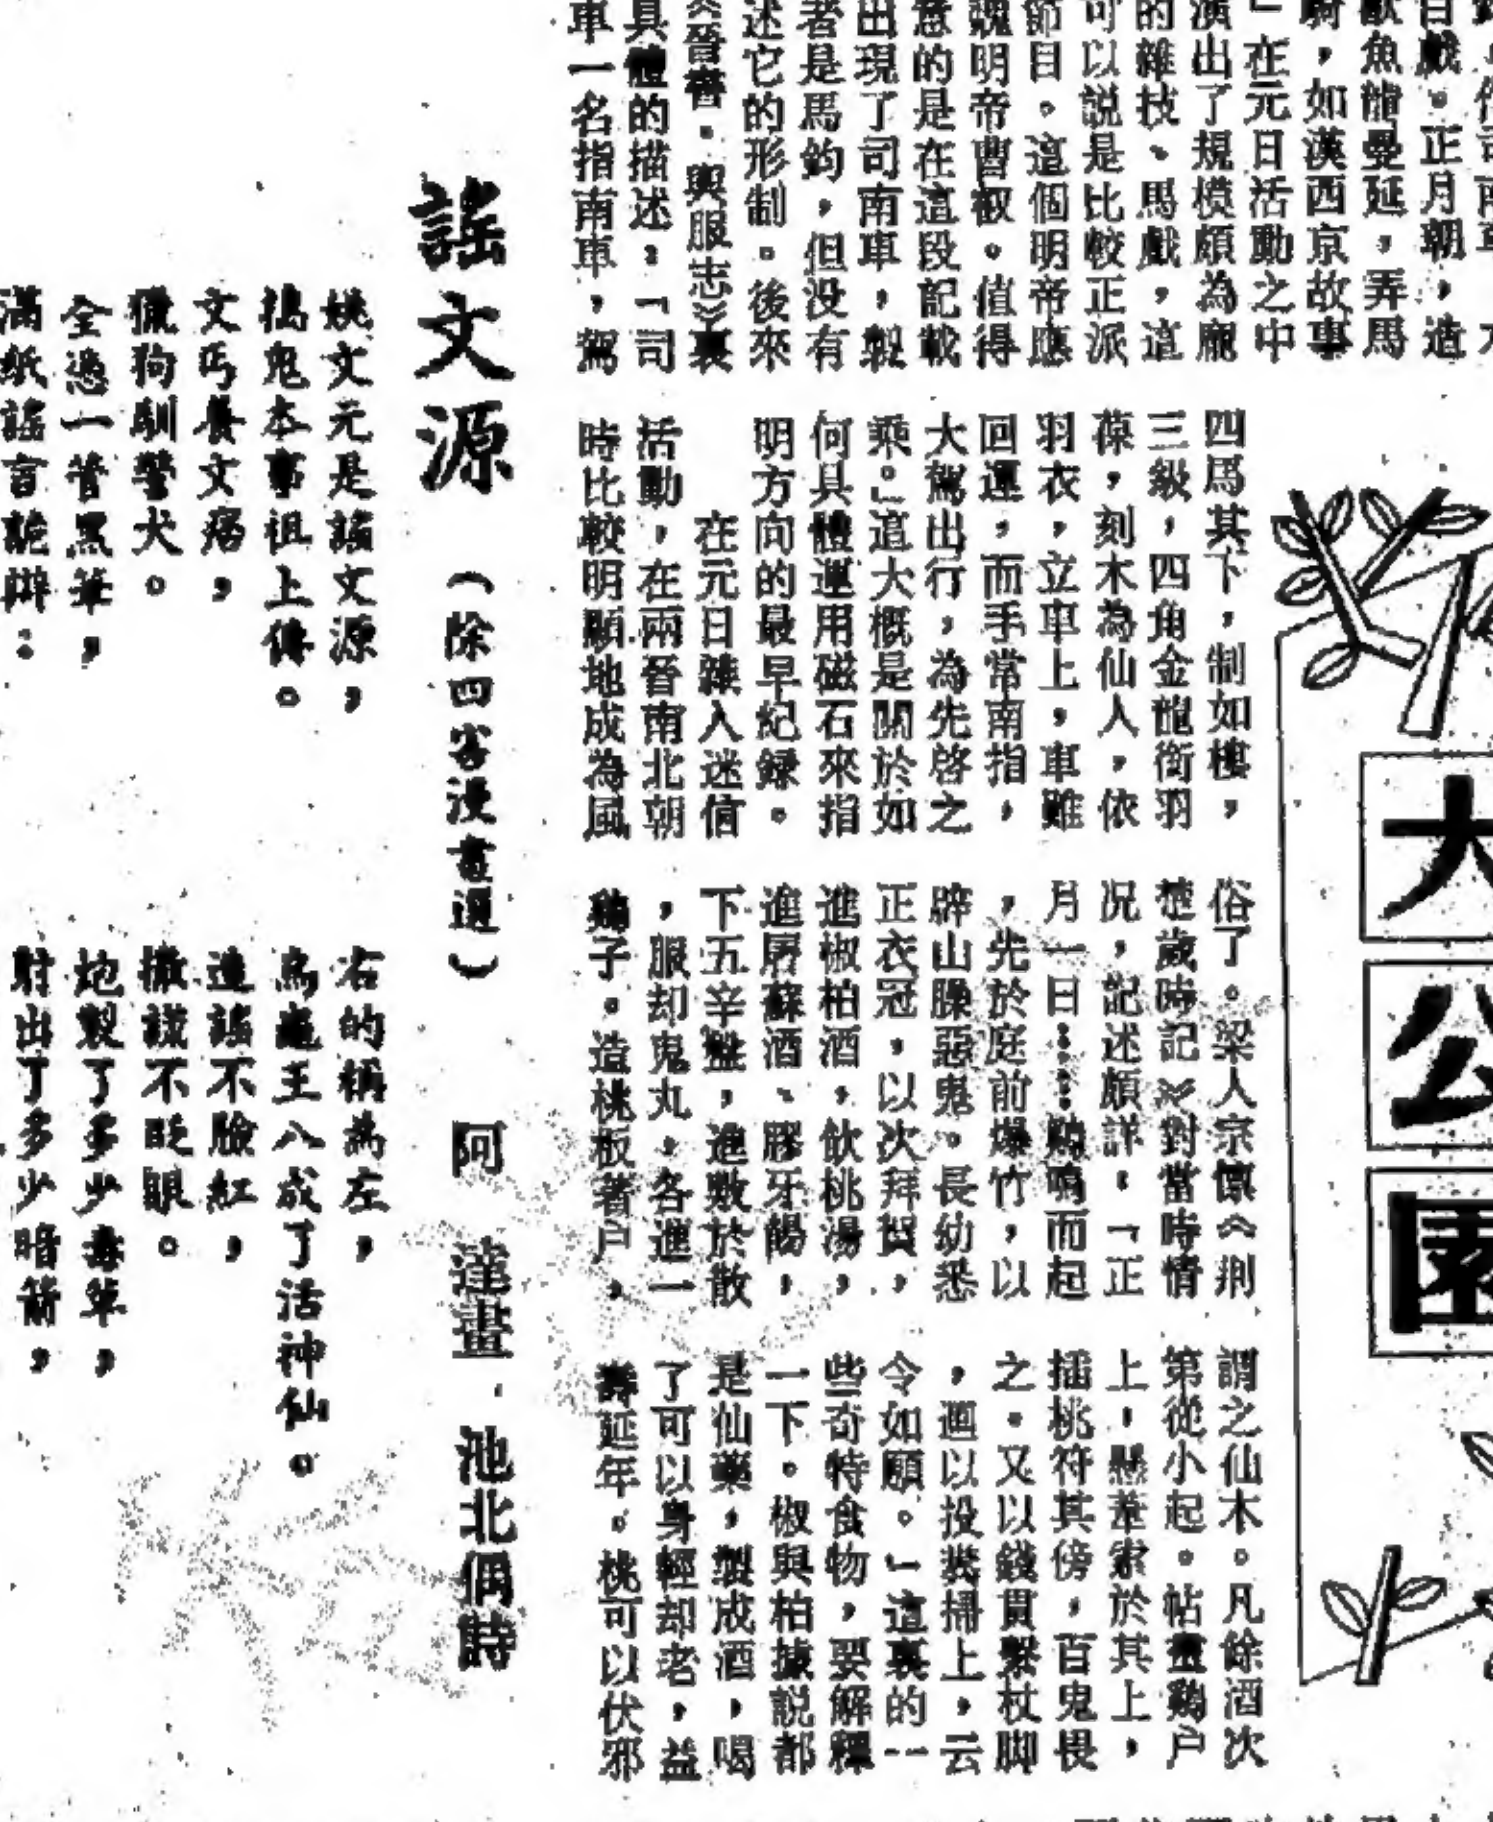 大公園
目戲。正月朝,造
獸魚龍曼延,弄馬
騎,如漢西京故事
」在元日活動之中
演出了規模頗為龐
的雜技、馬戲,這
可以説是比較正派
節目。這個明帝應
魏明帝曹叡。值得
意的是在這段記載
出現了司南車,製
者是馬鈞,但没有
述它的形制。後來
《晉書·輿服志》裏
具體的描述:「司
車一名指南車,駕
四馬其下,制如樓,
三級,四角金龍銜羽
葆,刻木為仙人,依
羽衣,立車上,車雖
回運,而手常南指,
大駕出行,為先啓之
乘。」這大概是關於如
何具體運用磁石來指
明方向的最早紀録。
在元日雜入迷信
活動,在兩晉南北朝
時比較明顯地成為風
俗了。梁人宗懔《荆
楚歲時記》對當時情
况,記述頗詳:「正
月一日……鷄鳴而起
,先於庭前爆竹,以
辟山臊惡鬼。長幼悉
正衣冠,以次拜賀,
進椒柏酒,飲桃湯,
進屠蘇酒、膠牙餳,
下五辛盤,進敷於散
,服却鬼丸,各進一
鷄子。造桃板著户,
謂之仙木。凡餘酒次
第從小起。帖畫鷄户
上,懸葦索於其上,
插桃符其傍,百鬼畏
之。又以錢貫繫杖脚
,迴以投糞掃上,云
令如願。」這裏的一
些奇特食物,要解釋
一下。椒與柏據説都
是仙藥,製成酒,喝
了可以身輕却老,益
壽延年。桃可以伏邪
謡文源
(除四害漫畫選)
阿達畫 池北偶詩
姚文元是謡文源,
搗鬼本事祖上傳。
文丐養文痞,
獵狗馴警犬。
全憑一管黑筆,
滿紙謡言詭辯:
右的稱為左,
烏龜王八成了活神仙。
造謡不臉紅,
撒謊不眨眼。
炮製了多少毒草,
射出了多少暗箭,